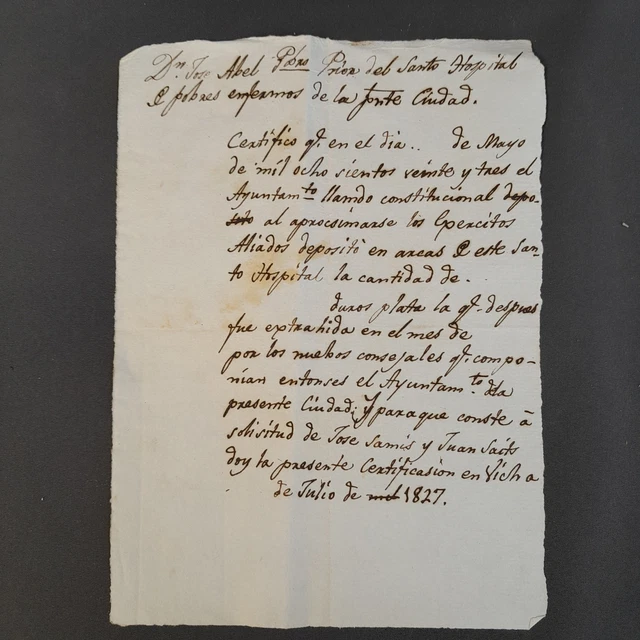 Dn. Jose Abel Pbro Prior del Santo Hospital
de pobres enfermos de la pnte Ciudad.
Certifico qe. en el dia .. de Mayo
de mil ocho sientos veinte y tres el
Ayuntamto llamdo constitucional depo-
sito al aprocsimarse los Epercitos
Aliados depositò en arcas de este San-
to Hospital la cantidad de .
duros plata la qe. despues
fue extrahida en el mes de
por los nuebos consejales qe. compo-
nian entonses el Ayuntamto. dela
presente Ciudad; Y para que conste à
solisitud de Jose Samis y Juan
doy la presente Certificasion en Vich a
de Julio de mil 1827.